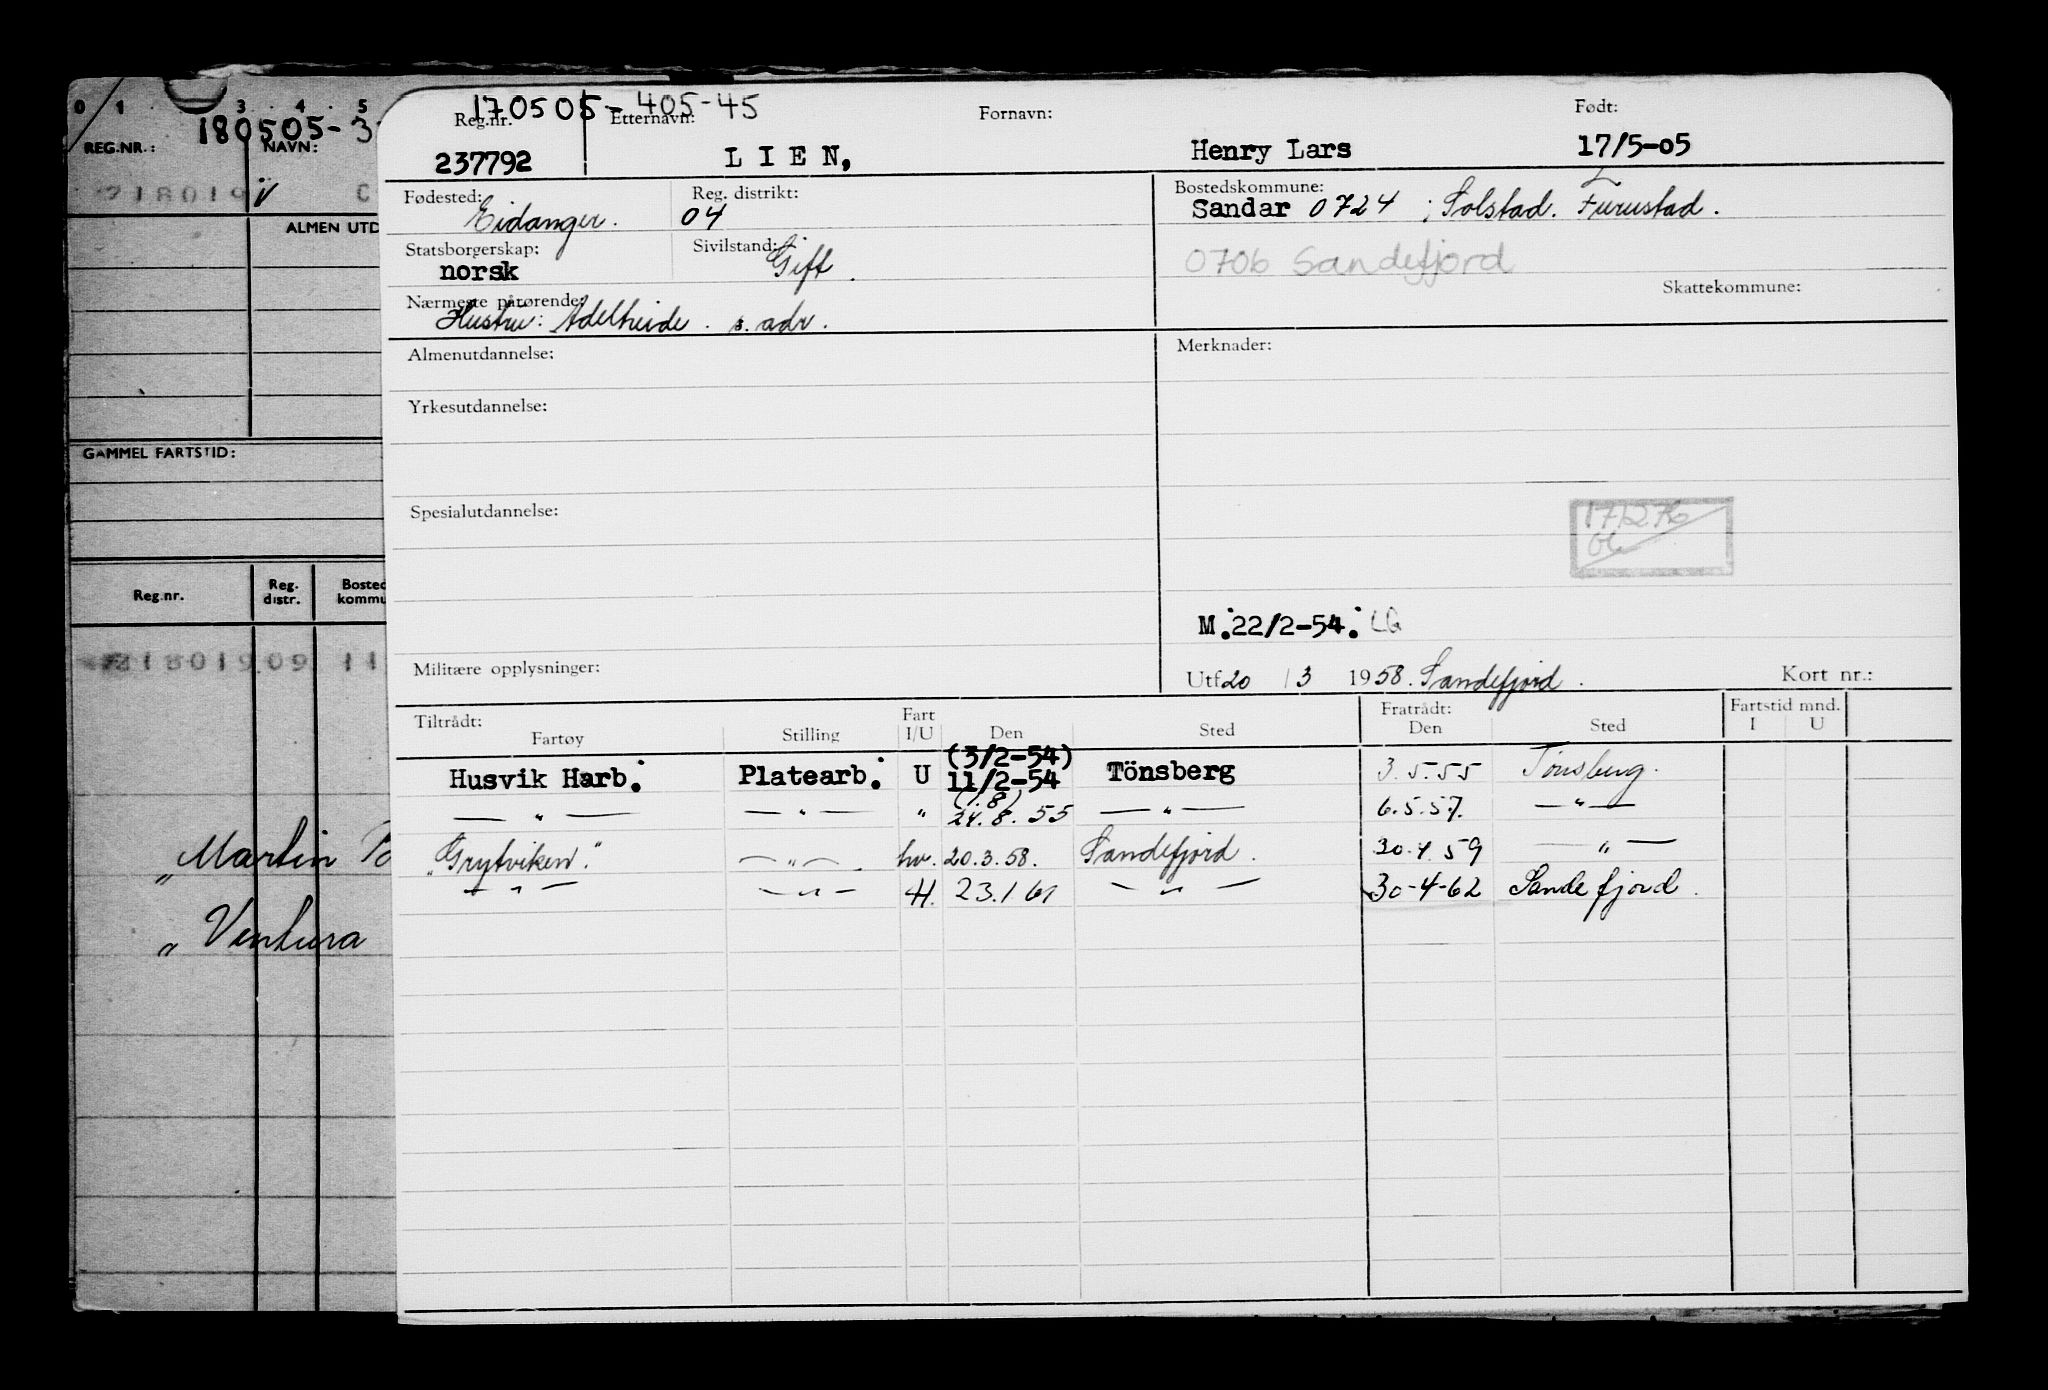 0 1 3 4 5
180505-3
REG.NR.: NAVN:
218019 C
ALMEN UTD
GAMMEL FARTSTID:
Reg.nr. Reg. distr. Bosted kommu
218019 09 11
„Martin
„Ventura
170505-405-45
Reg.nr. Etternavn: Fornavn: Født:
237792 LIEN, Henry Lars 17/5-05
Fødested: Eidanger. Reg. distrikt: 04 Bostedskommune: Sandar 0724 ; Solstad. Furustad.
Statsborgerskap: norsk Sivilstand: Gift. 0706 Sandefjord
Skattekommune:
Nærmeste pårørende: Hustru: Adelheide. s. adr.
Almenutdannelse: Merknader:
Yrkesutdannelse:
Spesialutdannelse:
171276
06
M.22/2-54. LG
Militære opplysninger: Utf 20 / 3 1958. Sandefjord. Kort nr.:
Tiltrådt: Fart Fratrådt: Fartstid mnd.
Fartøy Stilling I/U Den Sted Den Sted I U
(3/2-54)
Husvik Harb. Platearb. U 11/2-54 Tönsberg 3.5.55 Tönsberg.
(1.8)
— „ — — „ — „ 24.8.55 — „ — 6.5.57. — „ —
„Grytviken." — „ —. hv. 20.3.58. Sandefjord. 30.4.59 — „ —
— „ — — „ — H. 23.1 61 — „ — 30-4-62 Sandefjord.